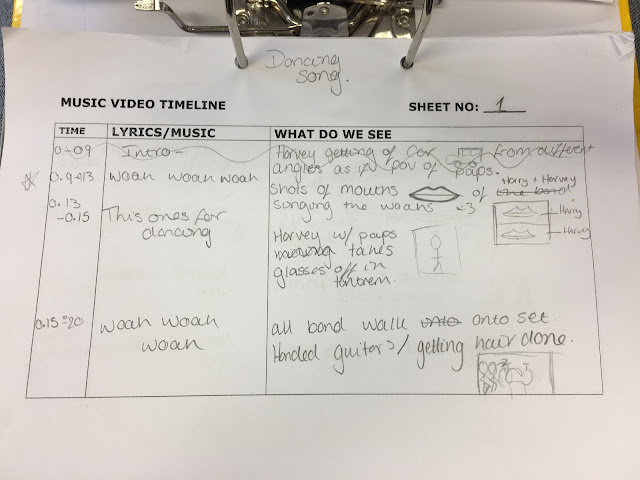 Dancing
Song.
MUSIC VIDEO TIMELINE
SHEET NO: 1
TIME LYRICS/MUSIC WHAT DO WE SEE
0-09 Intro- Harvey getting of car from different
angles as in pov of paps.
0.9-13 woah woah woah shots of mouths of the band Harry + Harvey
singing the woahs x3
Harry
Harvey
0.13
-0.15 This ones for
dancing
Harvey w/ paps
takes
glasses off in
tantrem.
0.15-20 woah woah
woah
all band walk onto onto set.
Handed guitars/ getting hair done.